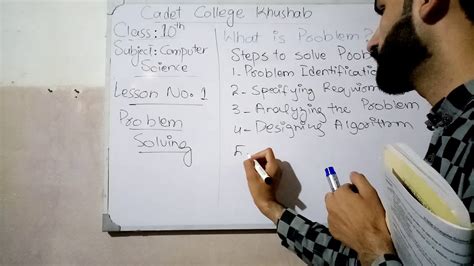 Cadet College Khushab
Class: 10th
Subject: Computer
Science
Lesson No. 1
Problem
Solving
What is Problem?
Steps to solve Prob
1- Problem Identificatio
2- Specifying Requirm
3- Analyzing the Problem
4- Designing Algorithm